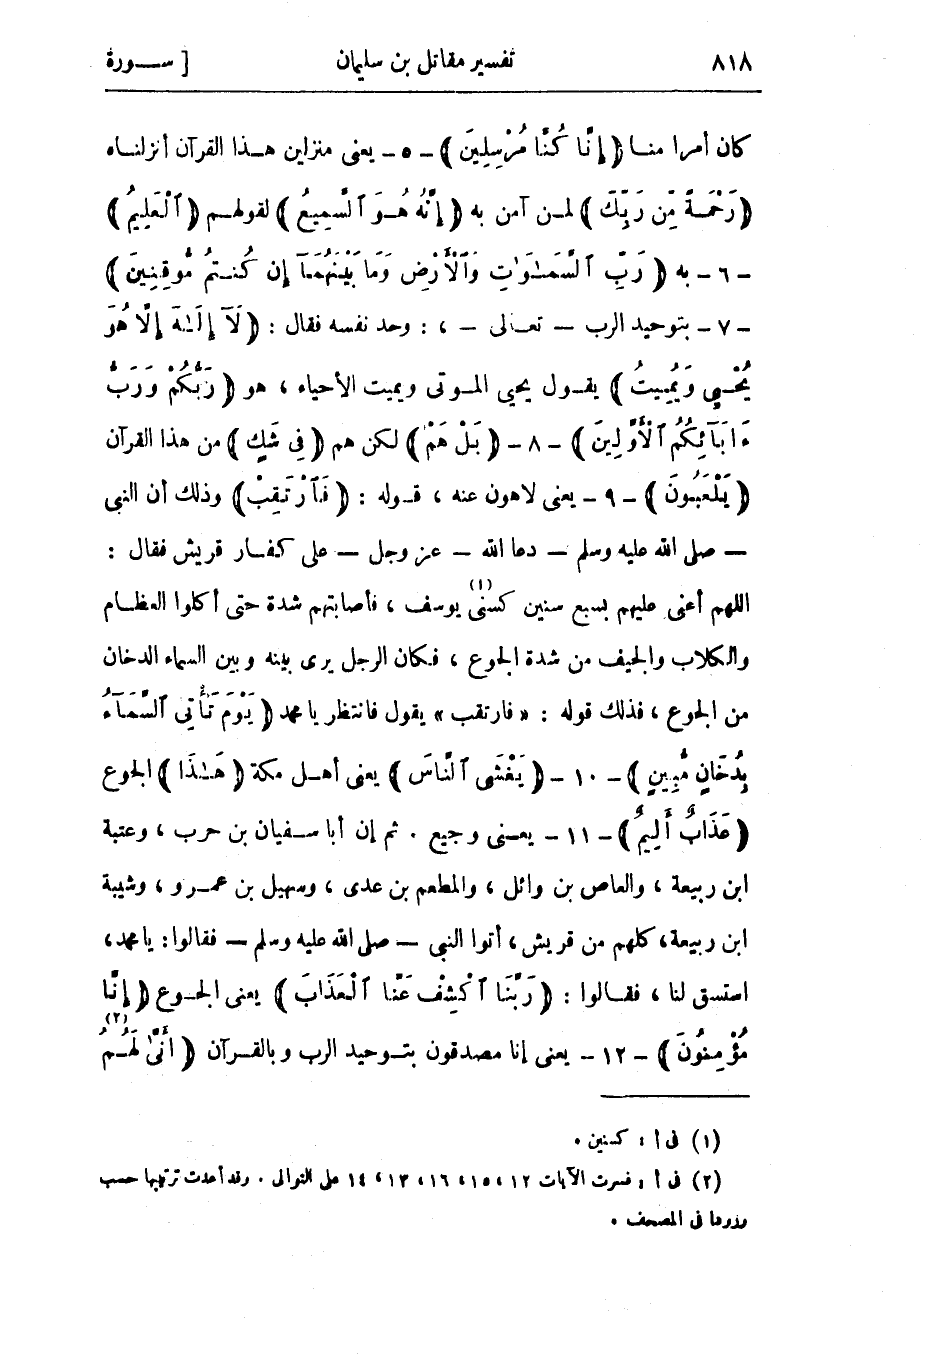 ٨١٨ تفسير مقاتل بن سليمان [ ســـورة
كان أمرا منـا ( إِنَّا كُنَّا مُرْسِلِينَ ) - ٥ - يعنى منزلين هـذا القرآن أنزلنـاه
( رَحْمَةً مِّن رَبِّكَ ) لمـن آمن به ( إِنَّهُ هُـوَ ٱلسَّمِيعُ ) لقولهـم ( ٱلْعَلِيمُ )
- ٦ - به ( رَبِّ ٱلسَّمَـٰوَٰتِ وَٱلْأَرْضِ وَمَا بَيْنَهُمَـآ إِن كُنـتُم مُّوقِنِينَ )
- ٧ - بتوحيد الرب — تعـالى — ، : وحد نفسه فقال : ( لَآ إِلَـٰهَ إِلَّا هُوَ
يُحْـيِي وَيُمِيتُ ) يقـول يحيى المـوتى ويميت الأحياء ، هو ( رَبُّكُمْ وَرَبُّ
ءَابَآئِكُمُ ٱلْأَوَّلِينَ ) - ٨ - ( بَلْ هُمْ ) لكن هم ( فِي شَكٍّ ) من هذا القرآن
( يَلْعَبُونَ ) - ٩ - يعنى لاهون عنه ، قـوله : ( فَٱرْتَقِبْ ) وذلك أن النبى
— صلى الله عليه وسلم — دعا الله — عز وجل — على كفـار قريش فقال :
اللهم أعنى عليهم بسبع سنين كسنى (١) يوسف ، فأصابتهم شدة حتى أكلوا العظـام
والكلاب والجيف من شدة الجوع ، فكان الرجل يرى بينه وبين السماء الدخان
من الجوع ، فذلك قوله : « فارتقب » يقول فانتظر يا محمد ( يَوْمَ تَأْتِي ٱلسَّمَـآءُ
بِدُخَانٍ مُّبِينٍ ) - ١٠ - ( يَغْشَى ٱلنَّاسَ ) يعنى أهـل مكة ( هَـٰذَا ) الجوع
( عَذَابٌ أَلِيمٌ ) - ١١ - يعـنى وجيع . ثم إن أبا سـفيان بن حرب ، وعتبة
ابن ربيعة ، والعاص بن وائل ، والمطعم بن عدى ، وسهيل بن عمـرو ، وشيبة
ابن ربيعة، كلهم من قريش، أتوا النبى — صلى الله عليه وسلم — فقالوا: يا محمد،
استسق لنا ، فقـالوا : ( رَبَّنَا ٱكْشِفْ عَنَّا ٱلْعَذَابَ ) يعنى الجـوع ( إِنَّا
مُؤْمِنُونَ ) - ١٢ - يعنى إنا مصدقون بتـوحيد الرب وبالقـرآن (٢) ( أَنَّىٰ لَهُـمُ
(١) فى أ : كسنين .
(٢) فى أ : فسرت الآيات ١٢ ، ١٥، ١٦، ١٣، ١٤ على التوالى . وقد أعدت ترتيبها حسب
ورودها فى المصحف .